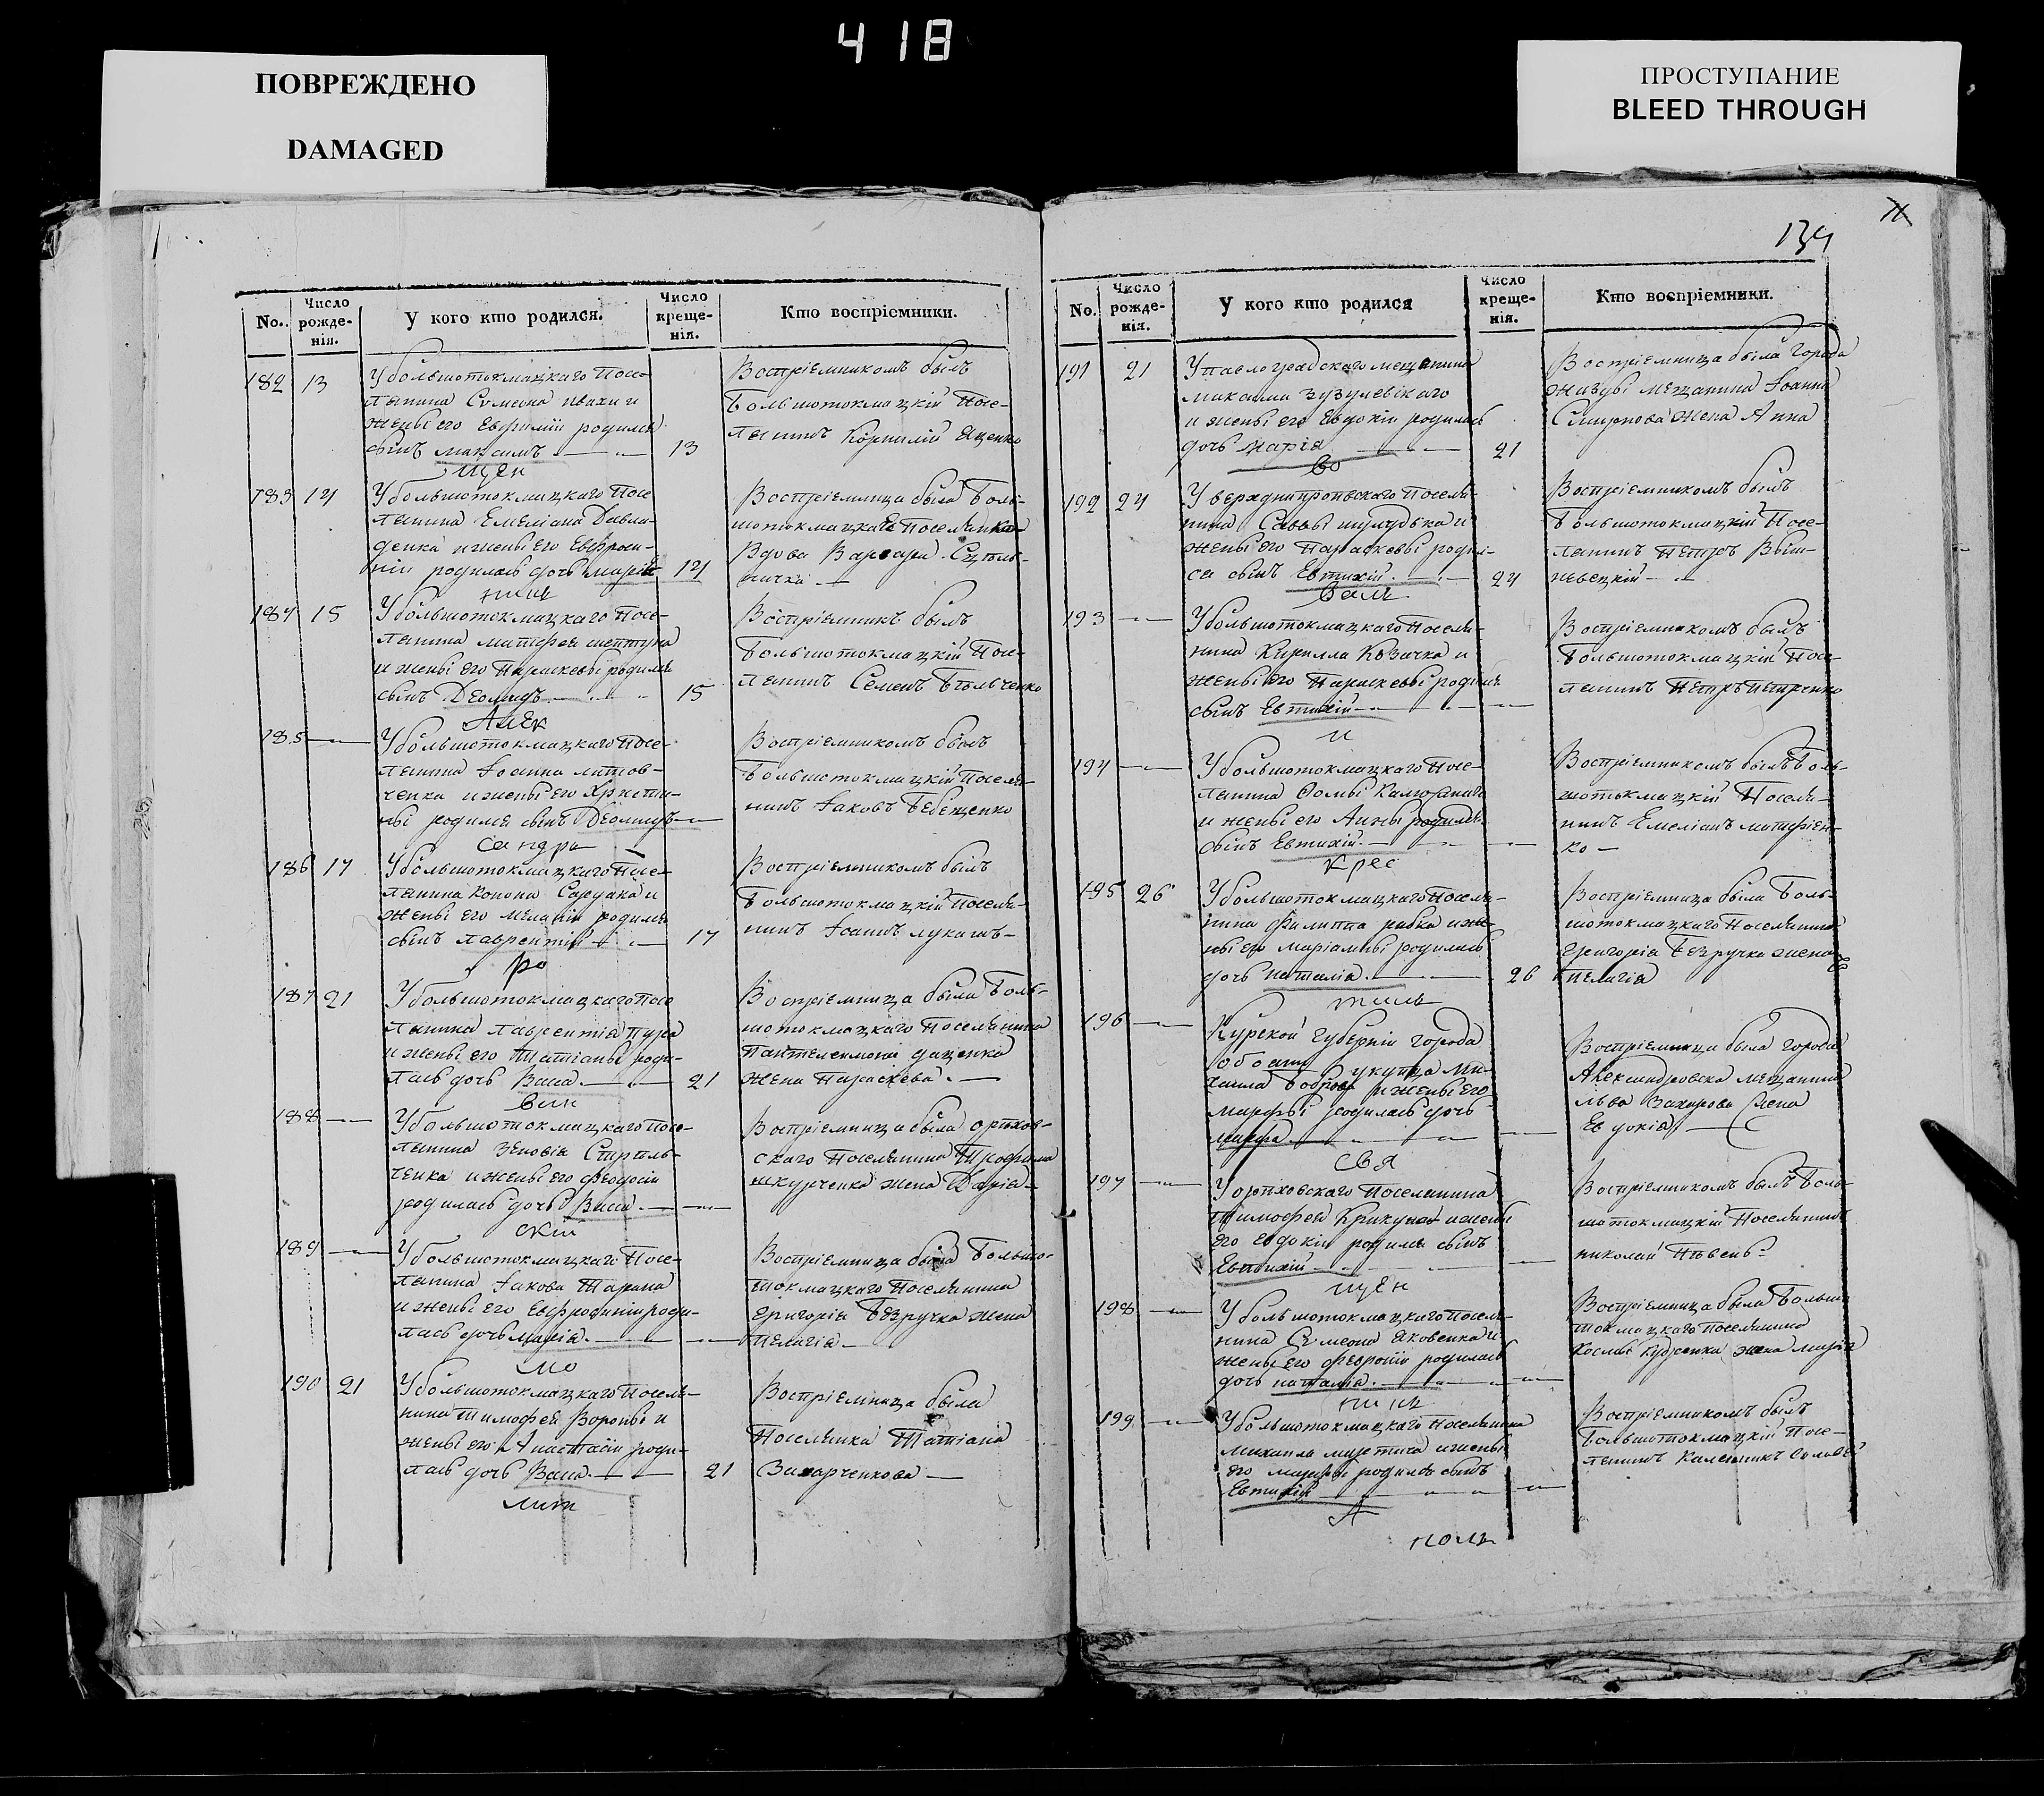 418
ПОВРЕЖДЕНО
DAMAGED
ПРОСТУПАНИЕ
BLEED THROUGH
No.
Число рожде-нія.
У кого кто родился.
Число креще-нія.
Кто воспріемники.
182 13
У большотокмацкаго Посе-
лянина Сѵмеона
жены его Евфиміи родился
сынъ Максимъ
13
Воспріемникомъ былъ
Большотокмацкій Посе-
лянинъ Корнилій Яценко
щен
183 14
У большотокмацкаго Посе
лянина Емеліана Давы-
денка и жены его Евфроси-
ніи родилась дочь Марія
14
Воспріемница была Боль-
шотокмацкая Поселянка
Вдова Варвара
никъ
184 15
У большотокмацкаго Посе-
лянина Матфея Шептуна
и жены его Параскевы родился
сынъ Діомидъ
15
Воспріемникъ былъ
Большотокмацкій Посе-
лянинъ Семенъ Бѣльченко
Алек
185
У большотокмацкаго Посе-
лянина Іоанна Литов-
ченка и жены его Христи-
ны родился сынъ Діомидъ
Воспріемникомъ былъ
Большотокмацкій Поселя-
нинъ Іаковъ Бебещенко
сандра
186 17
У большотокмацкаго Посе-
лянина Конона Сардака и
жены его Меланіи родился
сынъ Лаврентій
17
Воспріемникомъ былъ
Большотокмацкій Поселя-
нинъ Іоаннъ
ро
187 21
У большотокмацкаго Посе
лянина Лаврентія Пуза
и жены его Татіаны роди-
лась дочь Васса
21
Воспріемница была Боль-
шотокмацкаго Поселянина
Пантелеимона Даценка
жена Параскева
вин
188
У большотокмацкаго Посе-
лянина Зеновія Стриль-
ченка и жены его Феодосіи
родилась дочь Васса
Воспріемница была орѣхов-
скаго Поселянина Трофима
Шкурченка жена Дарія
скій
189
У большотокмацкаго Посе-
лянина Іакова Тарана
и жены его Евфросиніи роди-
лась дочь Марія
Воспріемница была Большо-
токмацкаго Поселянина
Григорія Безручка жена
Пелагія
мо
190 21
У большотокмацкаго Поселя-
нина Тимофея Вороны и
жены его Анастасіи роди-
лась дочь Васса
21
Воспріемница была
Поселянка Татіана
Захарченкова
лит
139
No.
Число рожде-нія.
У кого кто родился
Число креще-нія.
Кто воспріемники.
191 21
У павлоградскаго мещанина
Максима Зузулевскаго
и жены его Евдокіи родилась
дочь Марія
21
Воспріемница была города
Жиздры мещанина Іоанна
Смирнова жена Анна
во
192 24
У верхднипровскаго Поселя-
нина Саввы
жены его Параскевы родил-
ся сынъ Евтихій
24
Воспріемникомъ былъ
Большотокмацкій Посе-
лянинъ Петръ Выш-
невецкій
193
У большотокмацкаго Поселя-
нина Кирилла Козачка и
жены его Параскевы родился
сынъ Евтихій
Воспріемникомъ былъ
Большотокмацкій Посе-
лянинъ Петръ Петренко
и
194
У большотокмацкаго Посе-
лянина Ѳомы
и жены его Анны родился
сынъ Евтихій
Воспріемникомъ былъ Боль-
шотокмацкій Поселя-
нинъ Емеліанъ Матфіен-
ко
крес
195 26
У большотокмацкаго Поселя-
нина Филиппа Рябка и же-
ны его Маріамны родилась
дочь Наталія
26
Воспріемница была Боль-
шотокмацкаго Поселянина
Григорія Безручка жена
Пелагія
196
Курской Губерніи города
Обояни у купца Ми-
хаила Боброва и жены его
Марфы родилась дочь
Марфа
Воспріемница была города
Александровска мещанина
Льва Захарова жена
Евдокія
свя
197
У орѣховскаго Поселянина
Тимофея Крикуна и жены
его Евдокіи родился сынъ
Евтихій
Воспріемникомъ былъ Боль-
шотокмацкій Поселянинъ
Николай Пѣвень
щен
198
У большотокмацкаго Поселя-
нина Сѵмеона Яковенка и
жены его Февроніи родилась
дочь Наталія
Воспріемница была Большо
токмацкаго Поселянина
Космы жена Марія
никъ
199
У большотокмацкаго Поселянина
Михаила и жены
его Марфы родился сынъ
Евтихій
Воспріемникомъ былъ
Большотокмацкій Посе-
лянинъ Калениkъ
А
поль